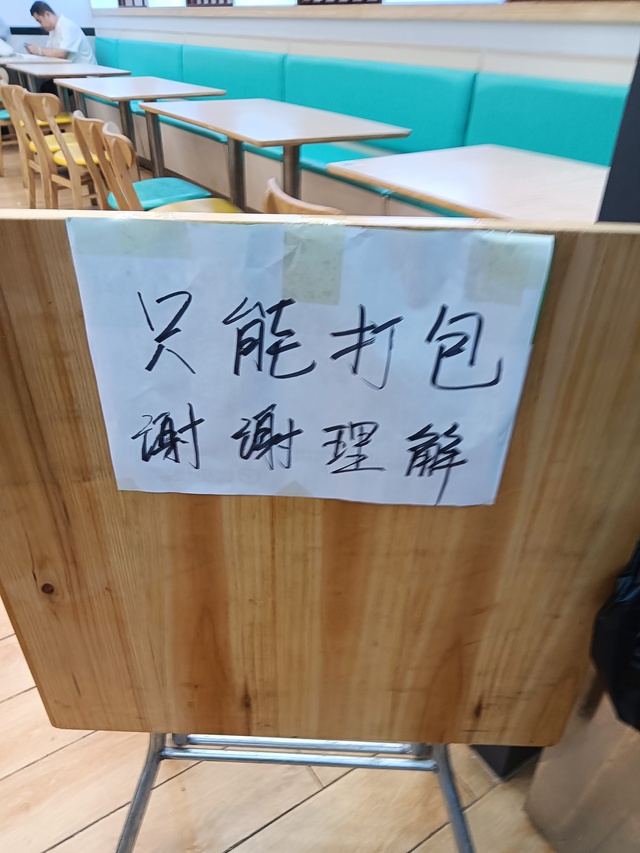 只能打包
谢谢理解